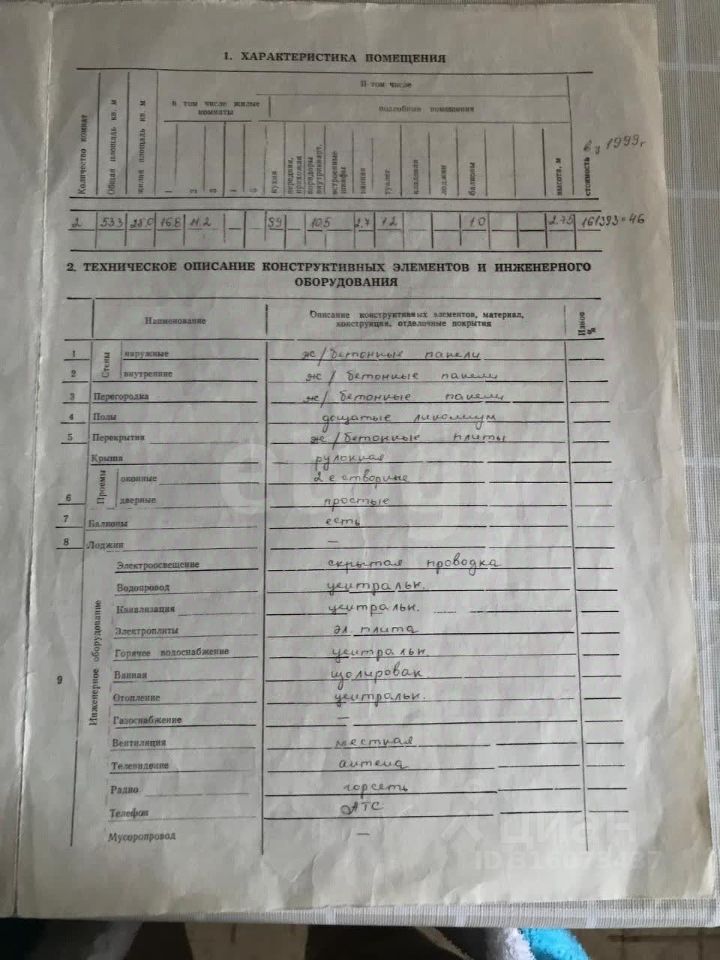 1. ХАРАКТЕРИСТИКА ПОМЕЩЕНИЯ
Количество комнат
Общая площадь кв. м
жилая площадь кв. м
В том числе
в том числе жилые комнаты
подсобные помещения
1 2 3 4 5
кухня
передняя, прихожая
коридоры внутрикварт.
встроенные шкафы
ванная
туалет
кладовая
лоджии
балконы
высота, м
стоимость в ц 1999г
2 53.3 28.0 16.8 11.2 — — 8.9 — 10.5 2.7 1.2 1.0 2.75 161393=46
2. ТЕХНИЧЕСКОЕ ОПИСАНИЕ КОНСТРУКТИВНЫХ ЭЛЕМЕНТОВ И ИНЖЕНЕРНОГО
ОБОРУДОВАНИЯ
Наименование
Описание конструктивных элементов, материал,
конструкция, отделочные покрытия
Износ %
Стены
1 наружные ж/бетонные панели
2 внутренние ж/бетонные панели
3 Перегородка ж/бетонные панели
4 Полы дощатые линолиум
5 Перекрытия ж/бетонные плиты
Крыша рулонная
Проемы
оконные 2е створные
6 дверные простые
7 Балконы есть
8 Лоджии —
9 Инженерное оборудование
Электроосвещение скрытая проводка
Водопровод центральн.
Канализация центральн.
Электроплиты эл. плита
Горячее водоснабжение центральн
Ванная
Отопление центральн.
Газоснабжение —
Вентиляция местная
Телевидение антена
Радио горсеть
Телефон АТС
Мусоропровод —
циан